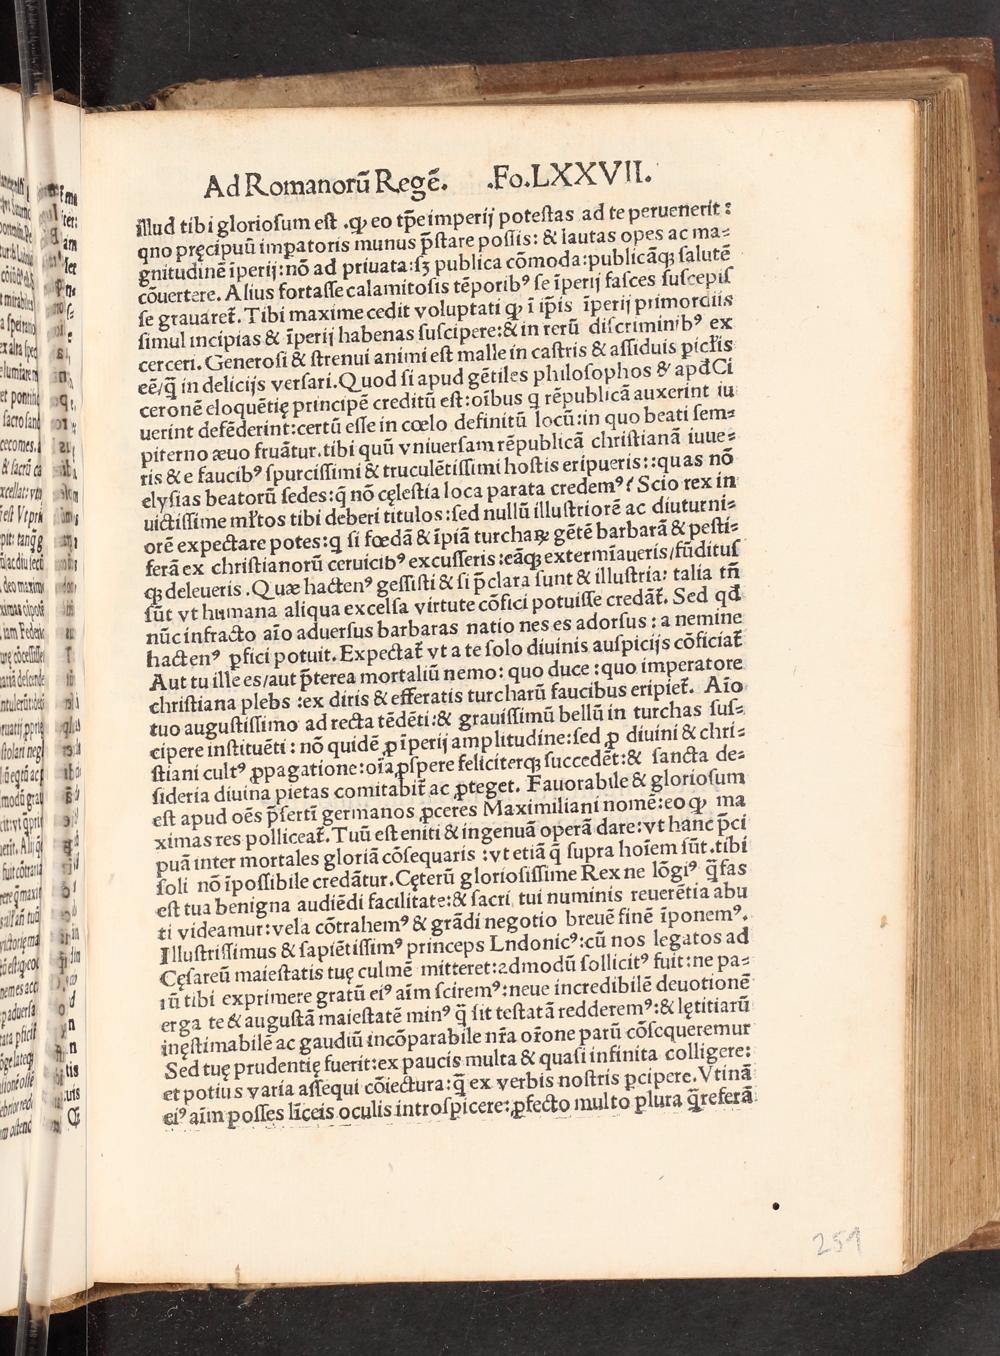 Ad Romanorū Regē. .Fo.LXXVII.
illud tibi gloriosum est .ꝙ eo tꝑe imperij potestas ad te peruenerit :
qno pręcipuū imꝑatoris munus p̄stare possis: & lautas opes ac ma⸗
gnitudinē īperij: nō ad priuata: sꝫ publica cōmoda: publicāqꝫ salutē
cōuertere. Alius fortasse calamitosis tēporibꝰ se īperij fasces suscepis
se grauareť. Tibi maxime cedit voluptati ꝙ ī ip̄is īperij primordiis
simul incipias & īperij habenas suscipere: & in rerū discriminibꝰ ex
cerceri. Generosi & strenui animi est malle in castris & assiduis pic̄lis
eē/q̄ in delicijs versari. Quod si apud gētiles philosophos & apđ Ci
ceronē eloquētię principē creditū est: oībus q rēpublicā auxerint iu
uerint defēderint: certū esse in cœlo definitū locū: in quo beati sem⸗
piterno æuo fruātur. tibi quū vniuersam rēpublicā christianā iuue⸗
ris & e faucibꝰ spurcissimi & truculētissimi hostis eripueris: : quas nō
elysias beatorū sedes: q̄ nō cęlestia loca parata credemꝰ? Scio rex in
uictissime mr̄tos tibi deberi titulos: sed nullū illustriorē ac diuturni⸗
orē expectare potes: q si fœdā & īpiā turchaꝝ gētē barbarā & pesti⸗
ferā ex christianorū ceruicibꝰ excusseris : eāqꝫ extermīaueris/fūditus
qꝫ deleueris . Quæ hactenꝰ gessisti & si p̄clara sunt & illustria: talia tñ
sūt vt humana aliqua excelsa virtute cōfici potuisse credāť. Sed qđ
nūc infracto aīo aduersus barbaras natio nes es adorsus : a nemine
hactenꝰ ꝑfici potuit. Expectať vt a te solo diuinis auspicijs cōficiať
Aut tu ille es/aut p̄terea mortaliū nemo: quo duce : quo imperatore
christiana plebs : ex diris & efferatis turcharū faucibus eripieť. Aīo
tuo augustissimo ad recta tēdēti: & grauissimū bellū in turchas sus⸗
cipere instituēti : nō quidē ꝓ īperij amplitudine: sed ꝓ diuini & chri⸗
stiani cultꝰ ꝓpagatione: oīa ꝓspere feliciterqꝫ succedēt: & sancta de⸗
sideria diuina pietas comitabiť ac ꝓteget. Fauorabile & gloriosum
est apud oēs p̄sertī germanos ꝓceres Maximiliani nomē: eo ꝙ ma
ximas res polliceať. Tuū est eniti & ingenuā operā dare: vt hanc p̄ci
puā inter mortales gloriā cōsequaris : vt etiā q̄ supra hoīem sūt . tibi
soli nō īpossibile credātur. Cęterū gloriosissime Rex ne lōgiꝰ q̄ fas
est tua benigna audiēdi facilitate: & sacri tui numinis reuerētia abu
ti videamur: vela cōtrahemꝰ & grādi negotio breuē finē īponemꝰ.
Illustrissimus & sapiētissimꝰ princeps Lndonicꝰ: cū nos legatos ad
Cęsareū maiestatis tuę culmē mitteret: admodū sollicitꝰ fuit: ne pa⸗
rū tibi exprimere gratū eiꝰ aīm scireꝰ: neue incredibilē deuotionē
erga te & augustā maiestatē minꝰ q̄ sit testatā redderemꝰ: & lętitiarū
inęstimabilē ac gaudiū incōparabile nr̄a or̄one parū cōsequeremur
Sed tuę prudentię fuerit: ex paucis multa & quasi infinita colligere:
et potius varia assequi cōiectura: q̄ ex verbis nostris ꝑcipere. Vtinā
eiꝰ aīm posses līceis oculis introspicere: ꝓfecto multo plura q̄ referā
259